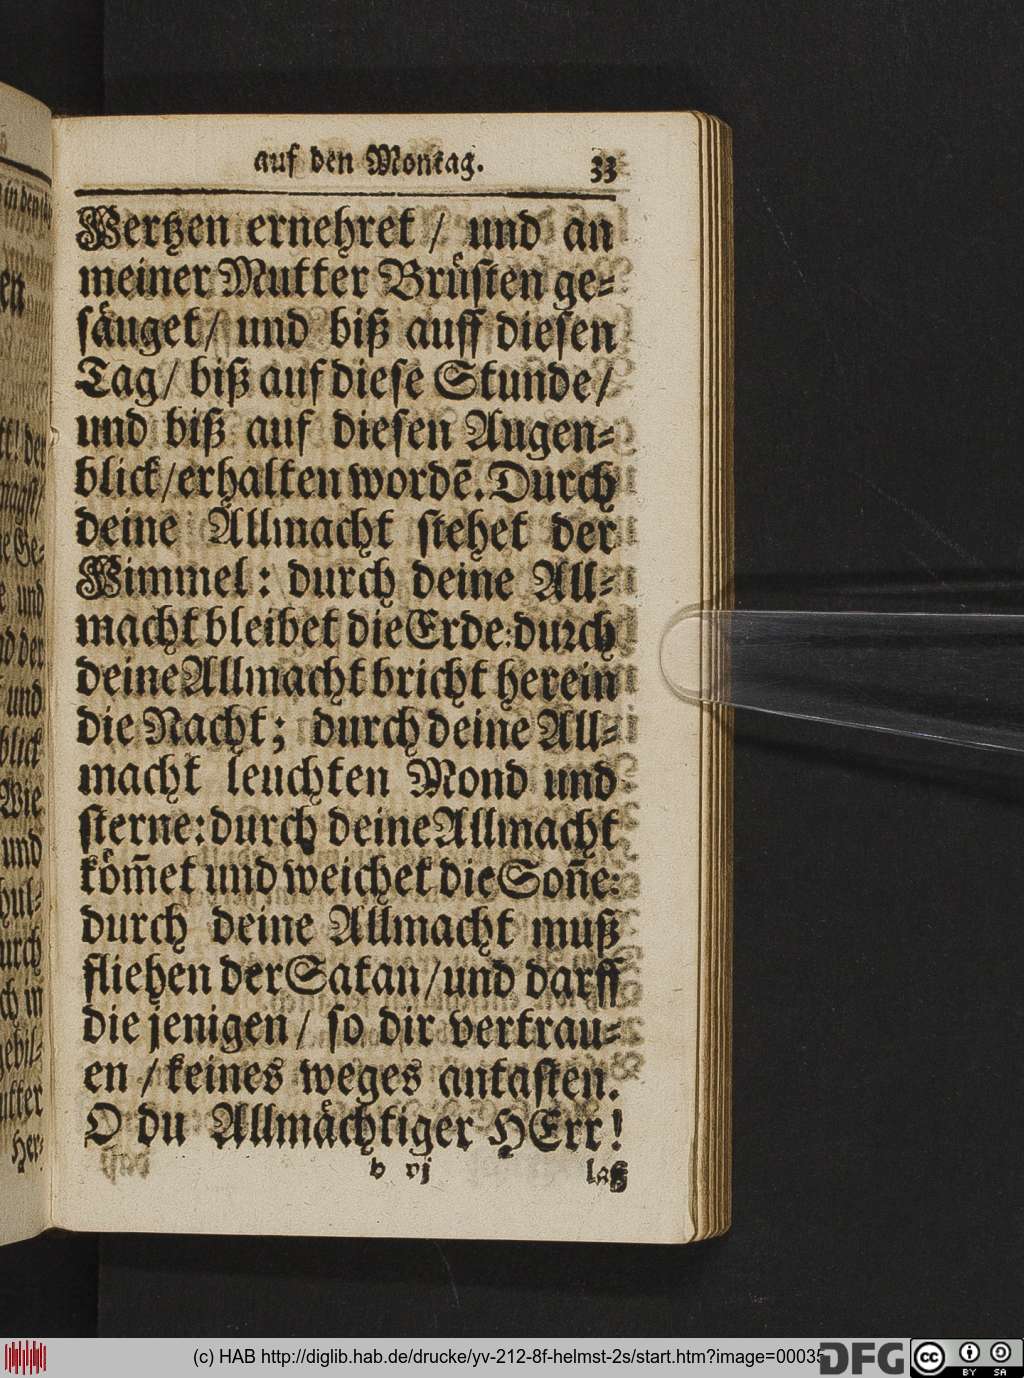 auf den Montag. 33
Hertzen ernehret / und an
meiner Mutter Brüsten ge-
säuget/ und biß auff diesen
Tag/ biß auf diese Stunde/
und biß auf diesen Augen-
blick/erhalten wordẽ. Durch
deine Allmacht stehet der
Himmel: durch deine All-
macht bleibet die Erde: durch
deine Allmacht bricht herein
die Nacht; durch deine All-
macht leuchten Mond und
sterne: durch deine Allmacht
köm̃et und weichet die Son̄e:
durch deine Allmacht muß
fliehen der Satan/und darff
die jenigen/ so dir vertrau-
en / keines weges antasten.
O du Allmächtiger HErr!
b vj laß
(c) HAB http://diglib.hab.de/drucke/yv-212-8f-helmst-2s/start.htm?image=00035
DFG
cc BY SA